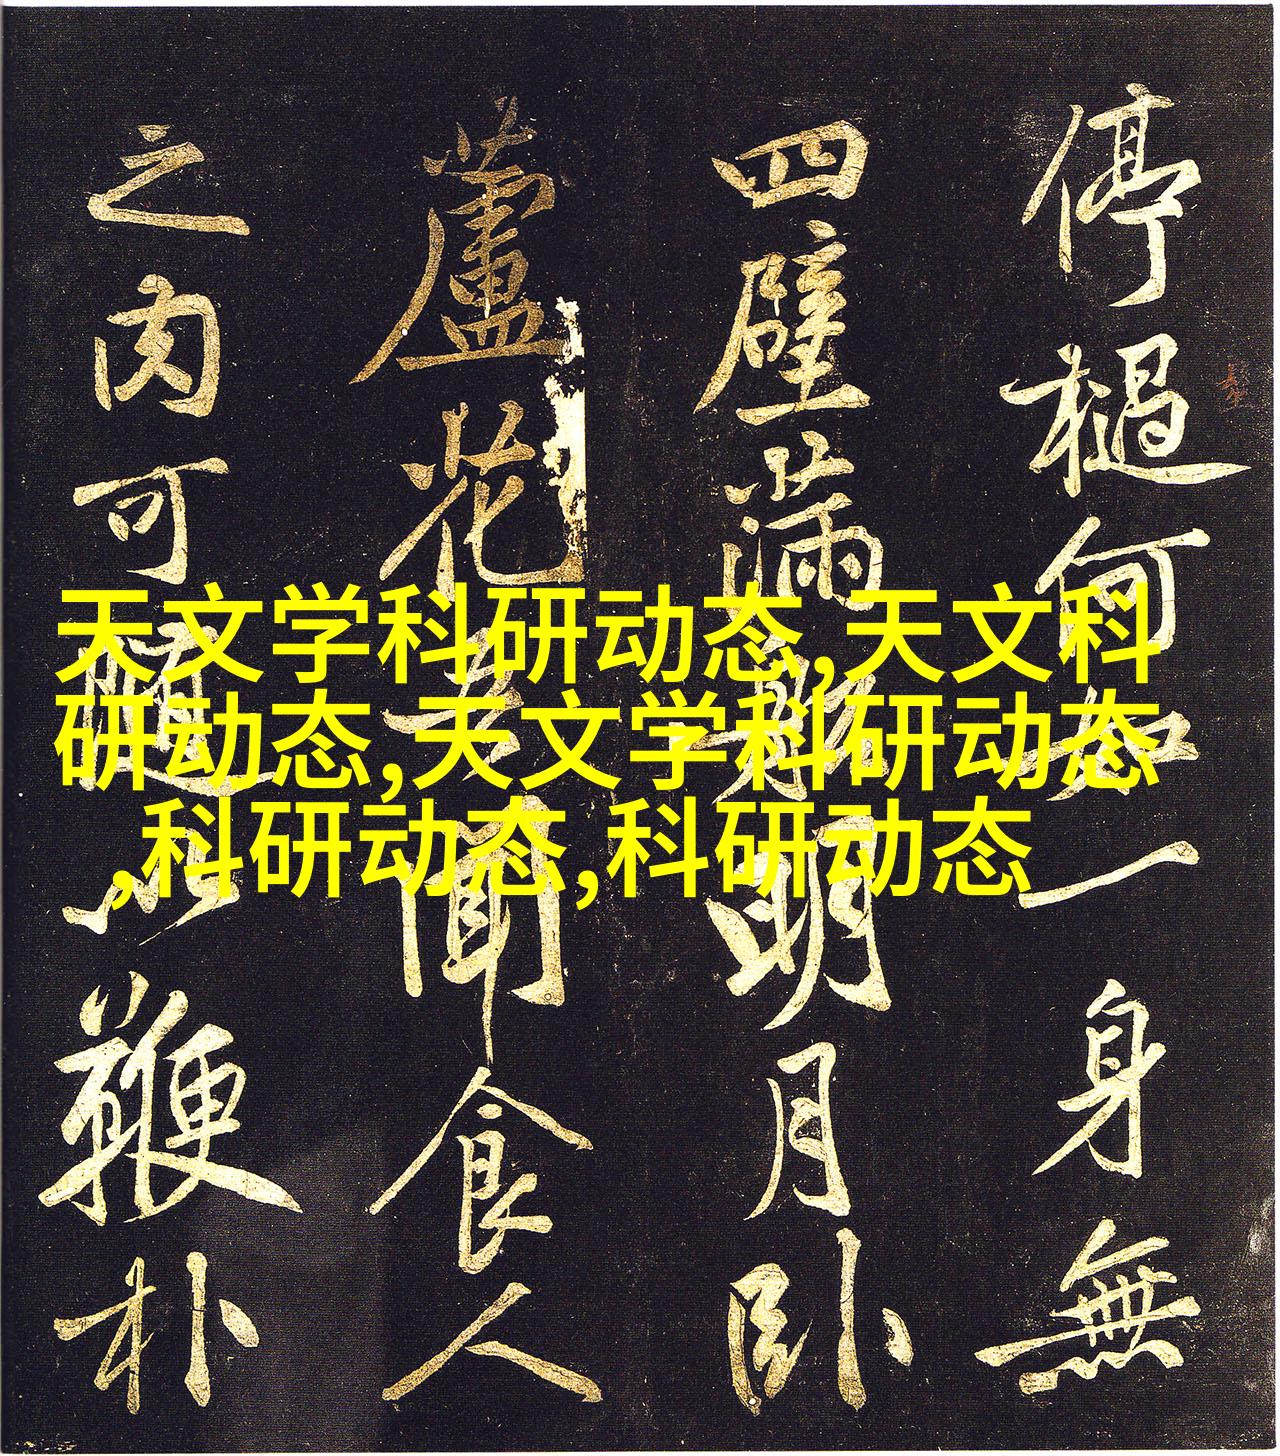 停檛何如一身無
四壁滿船明月臥
蘆花吾聞食人
之肉可隨以鞭朴
天文学科研动态,天文科
研动态,天文学科研动态
,科研动态,科研动态